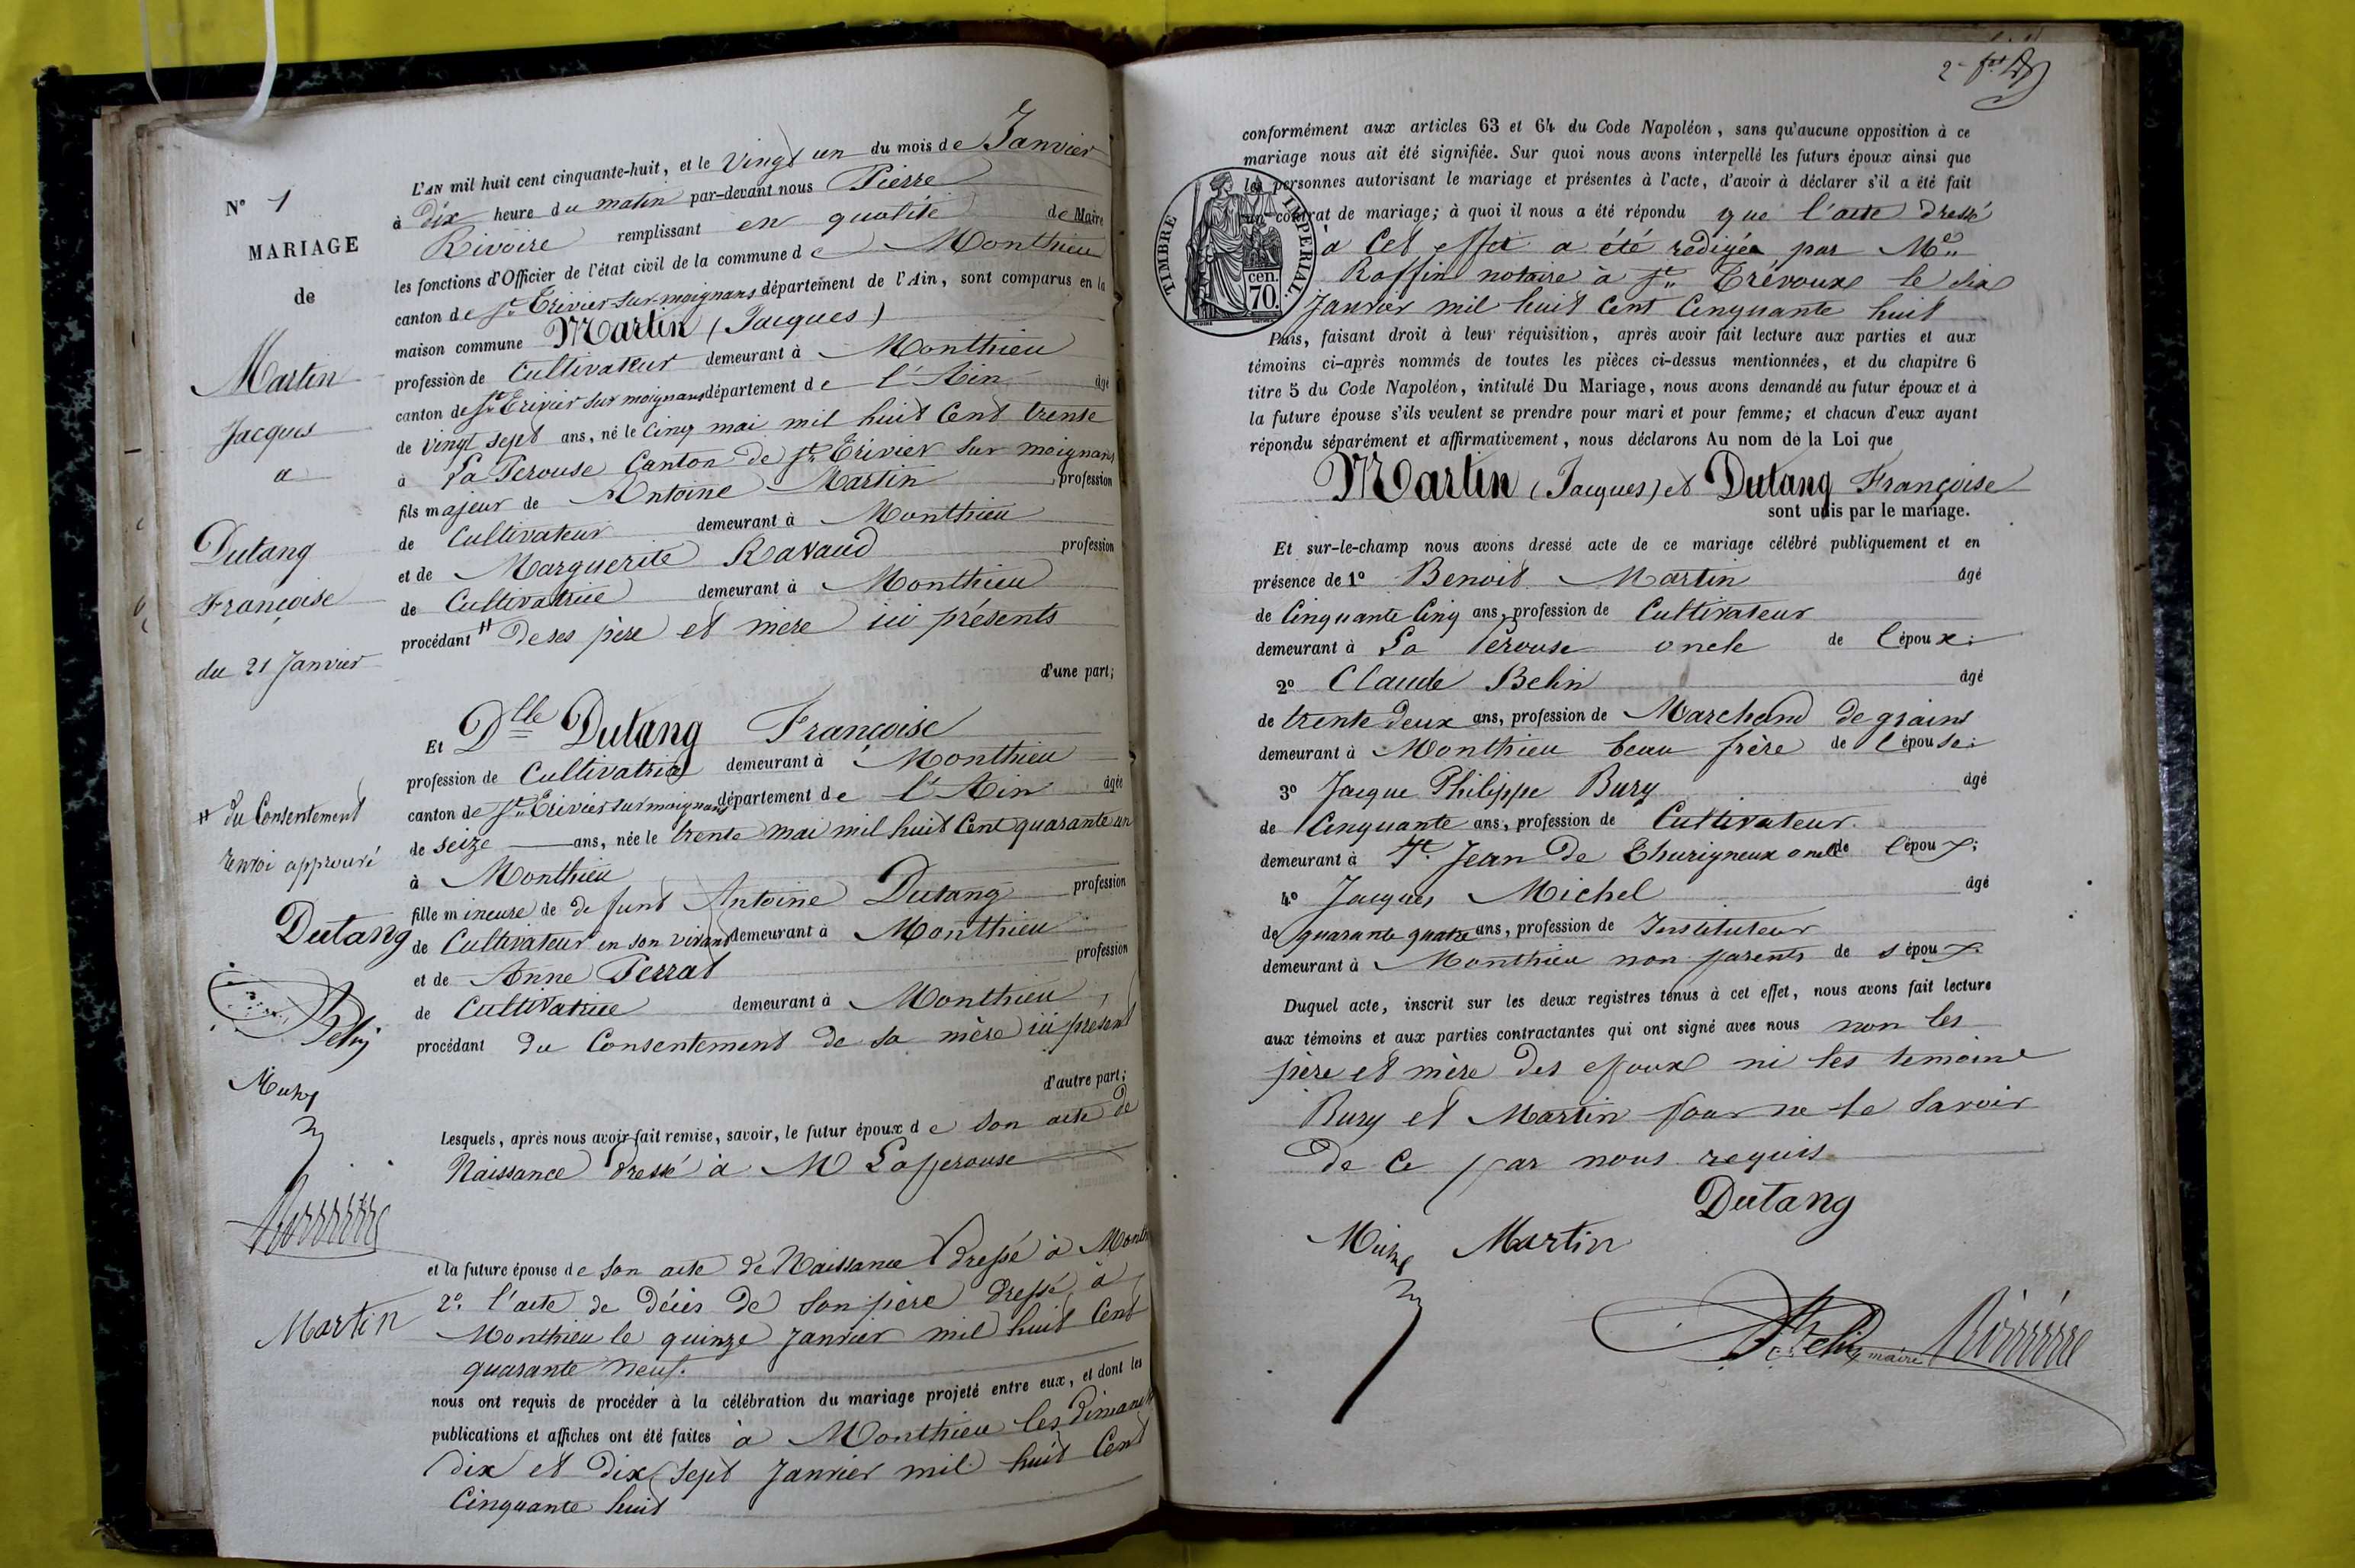 N° 1
MARIAGE
de
Martin
Jacques
a
Dutang
Françoise
du 21 Janvier
# du Consentement
renvoi approuvé
Dutang
Belin
Michel
Rivoire
Martin
L'AN mil huit cent cinquante-huit, et le vingt un du mois de Janvier
à dix heure du matin par-devant nous Pierre
Rivoire remplissant en qualité de Maire
les fonctions d'Officier de l'état civil de la commune de Monthieu
canton de St Trivier sur moignans département de l'Ain, sont comparus en la
maison commune Martin (Jacques)
profession de Cultivateur demeurant à Monthieu
canton de St Trivier sur moignans département de l'Ain âgé
de vingt sept ans, né le Cinq mai mil huit Cent trente
à La Perouse Canton de St Trivier sur moignans
fils majeur de Antoine Martin profession
de Cultivateur demeurant à Monthieu
et de Marguerite Ravaud profession
de Cultivatrice demeurant à Monthieu
procédant # de ses père et mère ici présents
d'une part;
Et Dlle Dutang Françoise
profession de Cultivatrice demeurant à Monthieu
canton de St Trivier sur moignans département de l'Ain âgée
de seize ans, née le trente mai mil huit Cent quarante un
à Monthieu
fille mineure de defunt Antoine Dutang profession
de Cultivateur en son vivant demeurant à Monthieu
et de Anne Perrat profession
de Cultivatrice demeurant à Monthieu
procédant du Consentement de sa mère ici présent
d'autre part;
Lesquels, après nous avoir fait remise, savoir, le futur époux de son acte de
Naissance dressé à M Lapperouse
et la future épouse de son acte de Naissance dressé à Month
2° l'acte de décès de son père dressé à
Monthieu le quinze Janvier mil huit Cent
quarante neuf.
nous ont requis de procéder à la célébration du mariage projeté entre eux, et dont les
publications et affiches ont été faites à Monthieu les dimanch
dix et dix sept Janvier mil huit Cent
Cinquante huit
2e fet
conformément aux articles 63 et 64 du Code Napoléon, sans qu'aucune opposition à ce
mariage nous ait été signifiée. Sur quoi nous avons interpellé les futurs époux ainsi que
les personnes autorisant le mariage et présentes à l'acte, d'avoir à déclarer s'il a été fait
un contrat de mariage; à quoi il nous a été répondu que l'acte dressé
à Cet effet a été redigée par Me
Raffin notaire à St Trévoux le six
Janvier mil huit Cent Cinquante huit
TIMBRE IMPERIAL
cen.
70.
Puis, faisant droit à leur réquisition, après avoir fait lecture aux parties et aux
témoins ci-après nommés de toutes les pièces ci-dessus mentionnées, et du chapitre 6
titre 5 du Code Napoléon, intitulé Du Mariage, nous avons demandé au futur époux et à
la future épouse s'ils veulent se prendre pour mari et pour femme; et chacun d'eux ayant
répondu séparément et affirmativement, nous déclarons Au nom de la Loi que
Martin (Jacques) et Dutang Françoise
sont unis par le mariage.
Et sur-le-champ nous avons dressé acte de ce mariage célébré publiquement et en
présence de 1° Benoit Martin âgé
de Cinquante Cinq ans, profession de Cultivateur
demeurant à La Pérouse oncle de l'époux;
2° Claude Belin âgé
de trente deux ans, profession de Marchand de grains
demeurant à Monthieu beau frère de l'épouse;
3° Jacque Philippe Bury âgé
de Cinquante ans, profession de Cultivateur
demeurant à St. Jean de Thurigneux oncle de l'époux;
4° Jacques Michel âgé
de quarante quatre ans, profession de Instituteur
demeurant à Monthieu non parents de s époux.
Duquel acte, inscrit sur les deux registres tenus à cet effet, nous avons fait lecture
aux témoins et aux parties contractantes qui ont signé avec nous non les
père et mère des epoux ni les temoins
Bury et Martin pour ne le savoir
de Ce par nous requis
Dutang
Michel Martin
Belin maire Rivoire